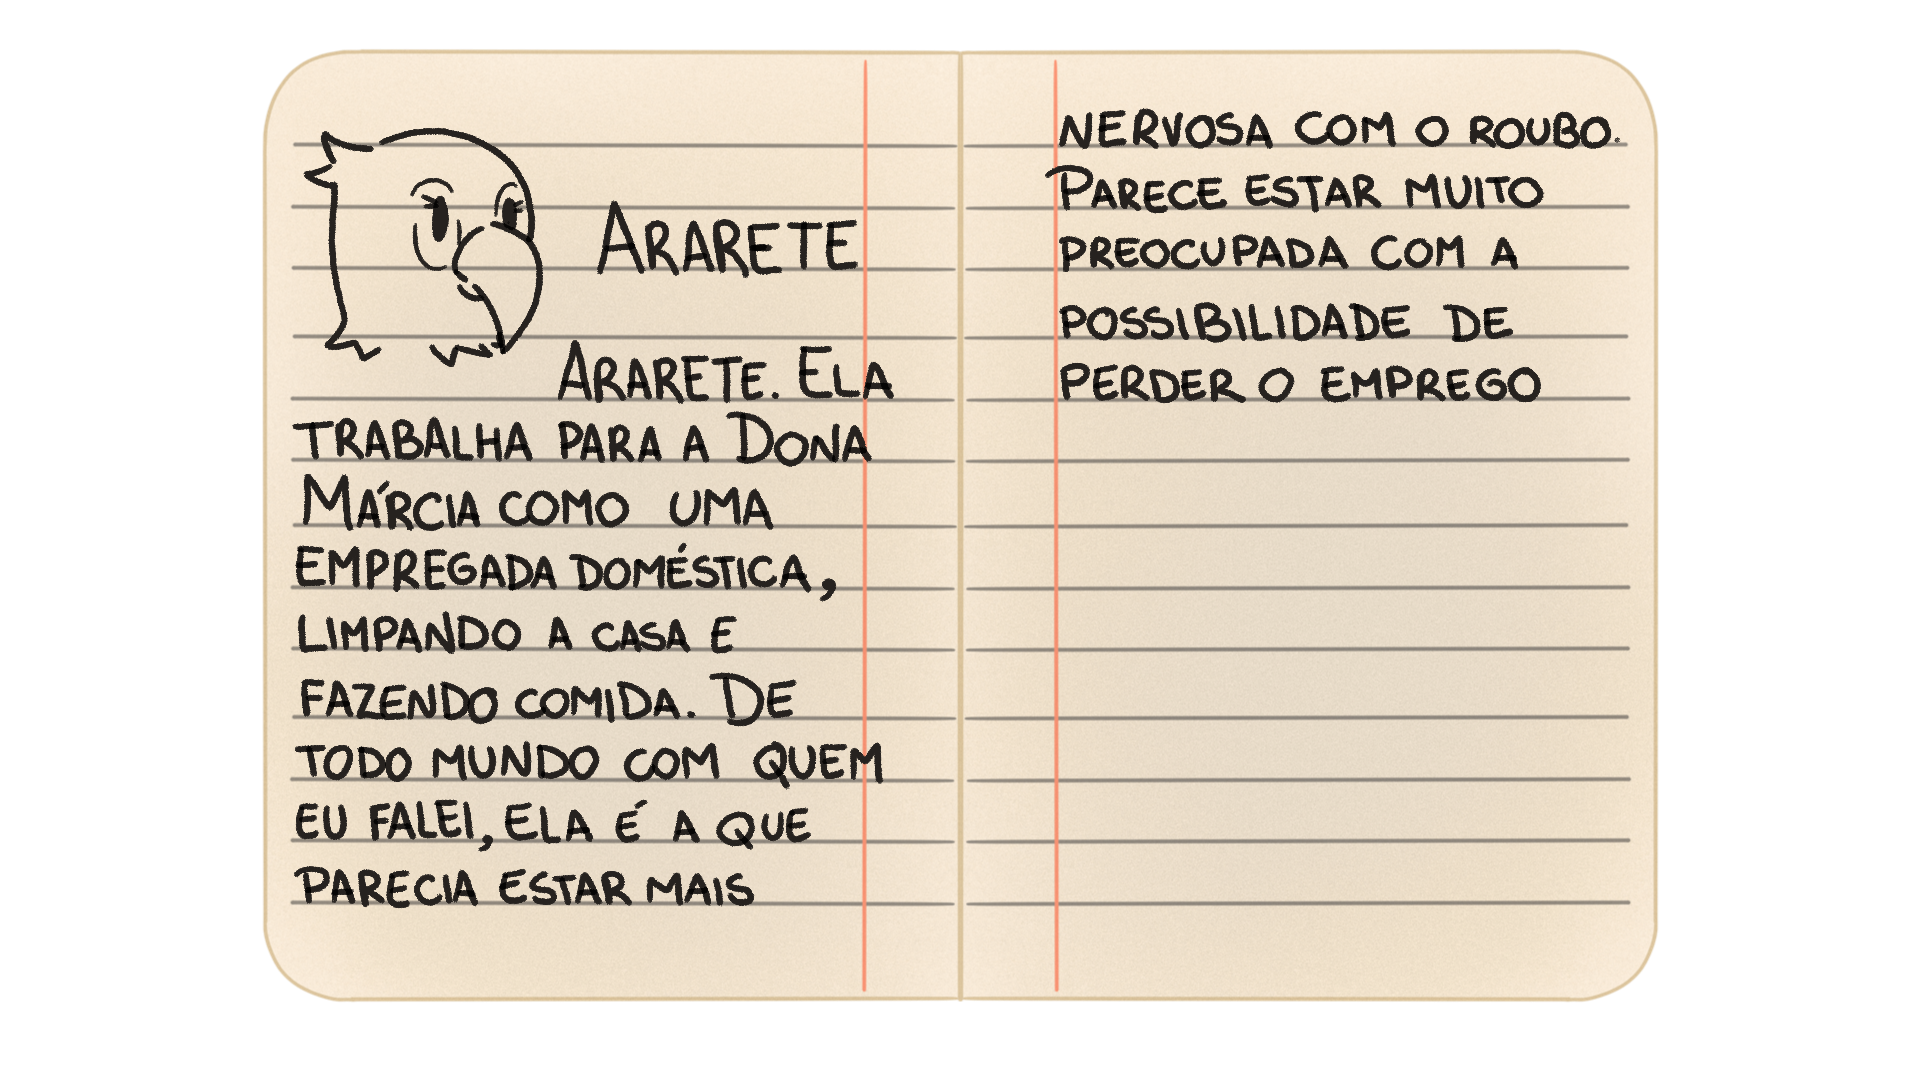 Ararete
Ararete. Ela
trabalha para a Dona
Márcia como uma
empregada doméstica,
limpando a casa e
fazendo comida. De
todo mundo com quem
eu falei, ela é a que
parecia estar mais
nervosa com o roubo.
Parece estar muito
preocupada com a
possibilidade de
perder o emprego